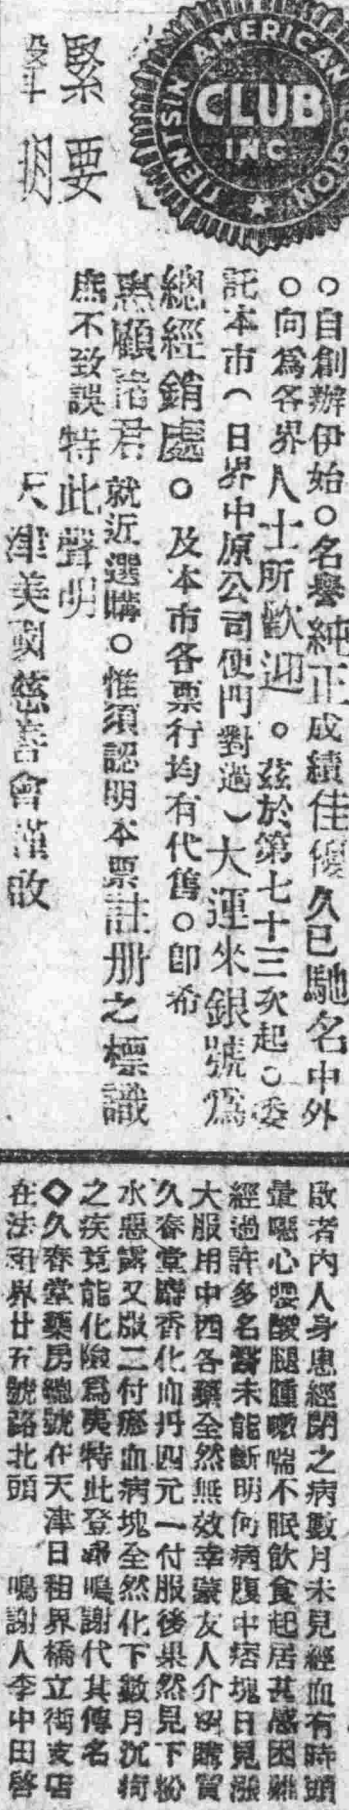 TIENTSIN AMERICAN
CLUB
INC
緊要
聲明
○自創辦伊始○名譽純正成績佳優久已馳名中外
○向為各界人士所歡迎○茲於第七十三次起○委
託本市（日界中原公司便門對過）大運來銀號為
總經銷處○及本市各票行均有代售○即希
惠顧諸君就近選購○惟須認明本票註册之標識
庶不致誤特此聲明
天津美國慈善會謹啟
啟者內人身患經閉之病數月未見經血有時頭
暈噁心腰酸腿腫嗽喘不眠飲食起居甚感困難
經過許多名醫未能斷明何病腹中痞塊日見漲
大服用中西各藥全然無效幸蒙友人介紹購買
久春堂麝香化血丹四元一付服後果然見下粉
水惡露又服二付瘀血病塊全然化下數月沉疴
之疾竟能化險為夷特此登鳴謝代其傳名
◇久春堂藥房總號在天津日租界橋立街支店
在法租界廿五號路北頭　鳴謝人李中田啓